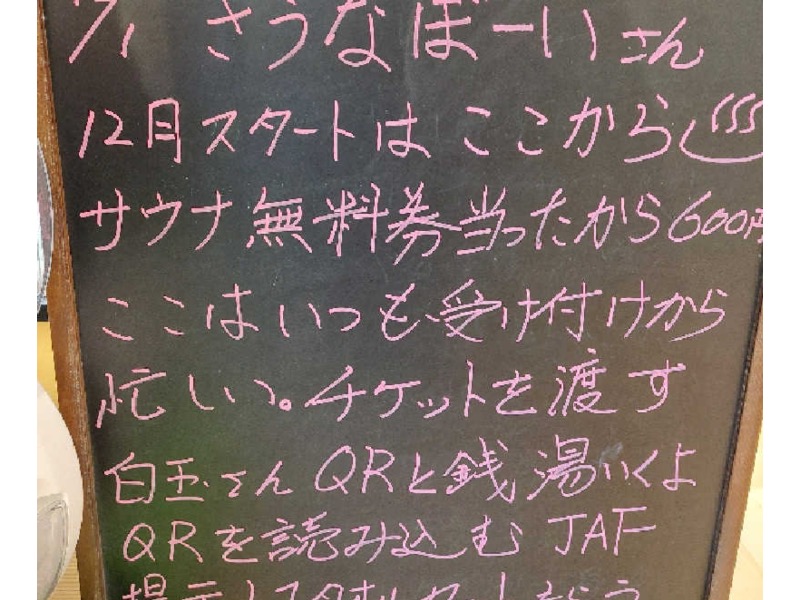 12/1 さうなぼーいさん
12月スタートはここから
サウナ無料券当ったから600円
ここはいつも受け付けから
忙しい。チケットを渡す
白玉さんQRと銭湯いくよ
QRを読み込む JAF
提示しスタオルセットもらう